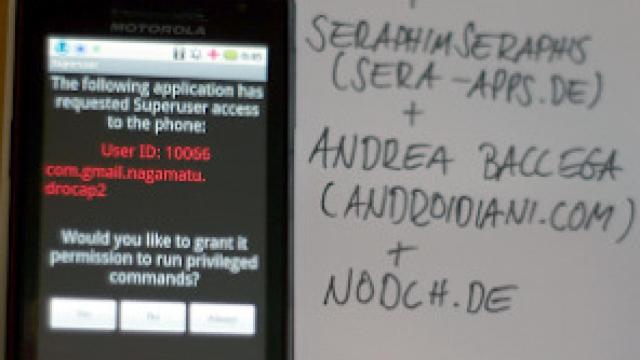 MOTOROLA
Superuser
The following application has
requested Superuser access
to the phone:
User ID: 10066
com.gmail.nagamatu.
drocap2
Would you like to grant it
permission to run privileged
commands?
Yes No Always
SERAPHIMSERAPHIS
(SERA-APPS.DE)
+
ANDREA BACCEGA
(ANDROIDIANI.COM)
+
NODCH.DE